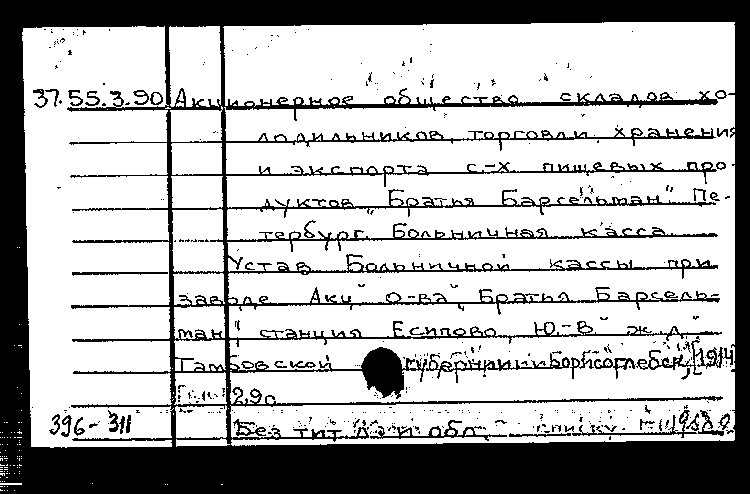 37.55.3.90 Акционерное общество складов хо-
лодильников, торговли, хранения
и экспорта с-х пищевых про-
дуктов „Братья Барсельман". Пе-
тербург. Больничная касса.
Устав Больничной кассы при
заводе Акц о-ва „Братья Барсель-
ман" станция Есипово, Ю.-В. ж.д.
Тамбовской губернии Борисоглебск, [1914
2,9с
396-311 Без тит. л. и обл.